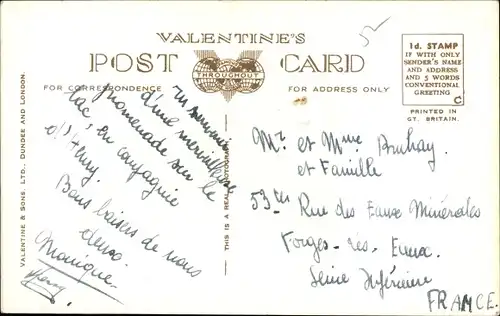 VALENTINE'S
POST CARD
THROUGHOUT
FOR CORRESPONDENCE
FOR ADDRESS ONLY
52
1d. STAMP
IF WITH ONLY
SENDER'S NAME
AND ADDRESS
AND 5 WORDS
CONVENTIONAL
GREETING
C
PRINTED IN
GT. BRITAIN.
VALENTINE & SONS, LTD., DUNDEE AND LONDON.
THIS IS A REAL PHOTOGRAPH
Un
d'une merveilleuse
promenade sur le
lac, en compagnie
d'Henry.
Bons baisers de nous
deux.
Monique
Henry.
Mr. et Mme
et Famille
53 Rue des Eaux Minérales
Forges-les-Eaux
Seine Inférieure
FRANCE.